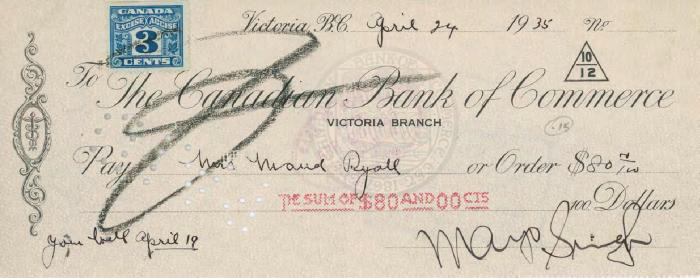 CANADA
EXCISE ACCISE
3
CENTS
Victoria, B.C. April 24 1935 No
10
12
To The Canadian Bank of Commerce
VICTORIA BRANCH
Pay Maud Ryall or Order $80
THE SUM OF $80 AND 00 CTS
100 Dollars
April 19
Mayo Singh